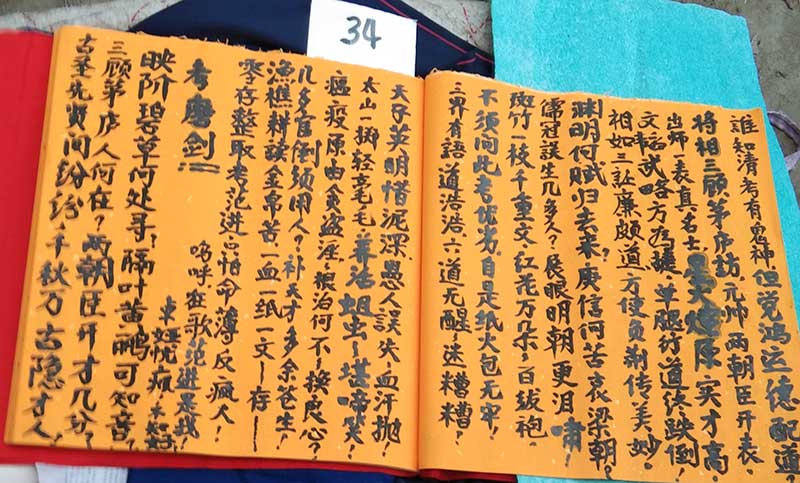 34
谁知清考有鬼神但觉鸿运德配道?
将相三顾茅庐访,元帅两朝臣开表。
出师一表真名士,星火燎原实才高。
文韬武略方为,单腿行道终跌倒!
相如三让廉颇道,万使负荆传美妙。
渊明何赋归去来?庾信何苦哀梁朝?
儒冠误生几多人?展眼明朝更泪啸!
斑竹一枝千重文,红花万朵百纹袍。
不须问此考优劣,自是纸火包无牢!
三界有语道浩浩,六道无醒迷糟糟!
天子英明惜泥深,愚人误失血汗抛!
太山一掷轻毫毛,养活蛆虫堪啼笑!
瘟疫原由贪盗淫,根治何不按良心?
几多官倒须用人?补天才多余苍生!
渔樵耕读金帛苦一血一纸一文一存一
零存整取考范进只怕命薄反疯人!
考磨剑
呜呼狂歌范进是我!
恍疯
映阶碧草何处寻?隔叶黄鹂可知音?
三顾茅庐人何在?两朝臣开才几分?
古圣先贤问纷纷千秋万古隐才人。